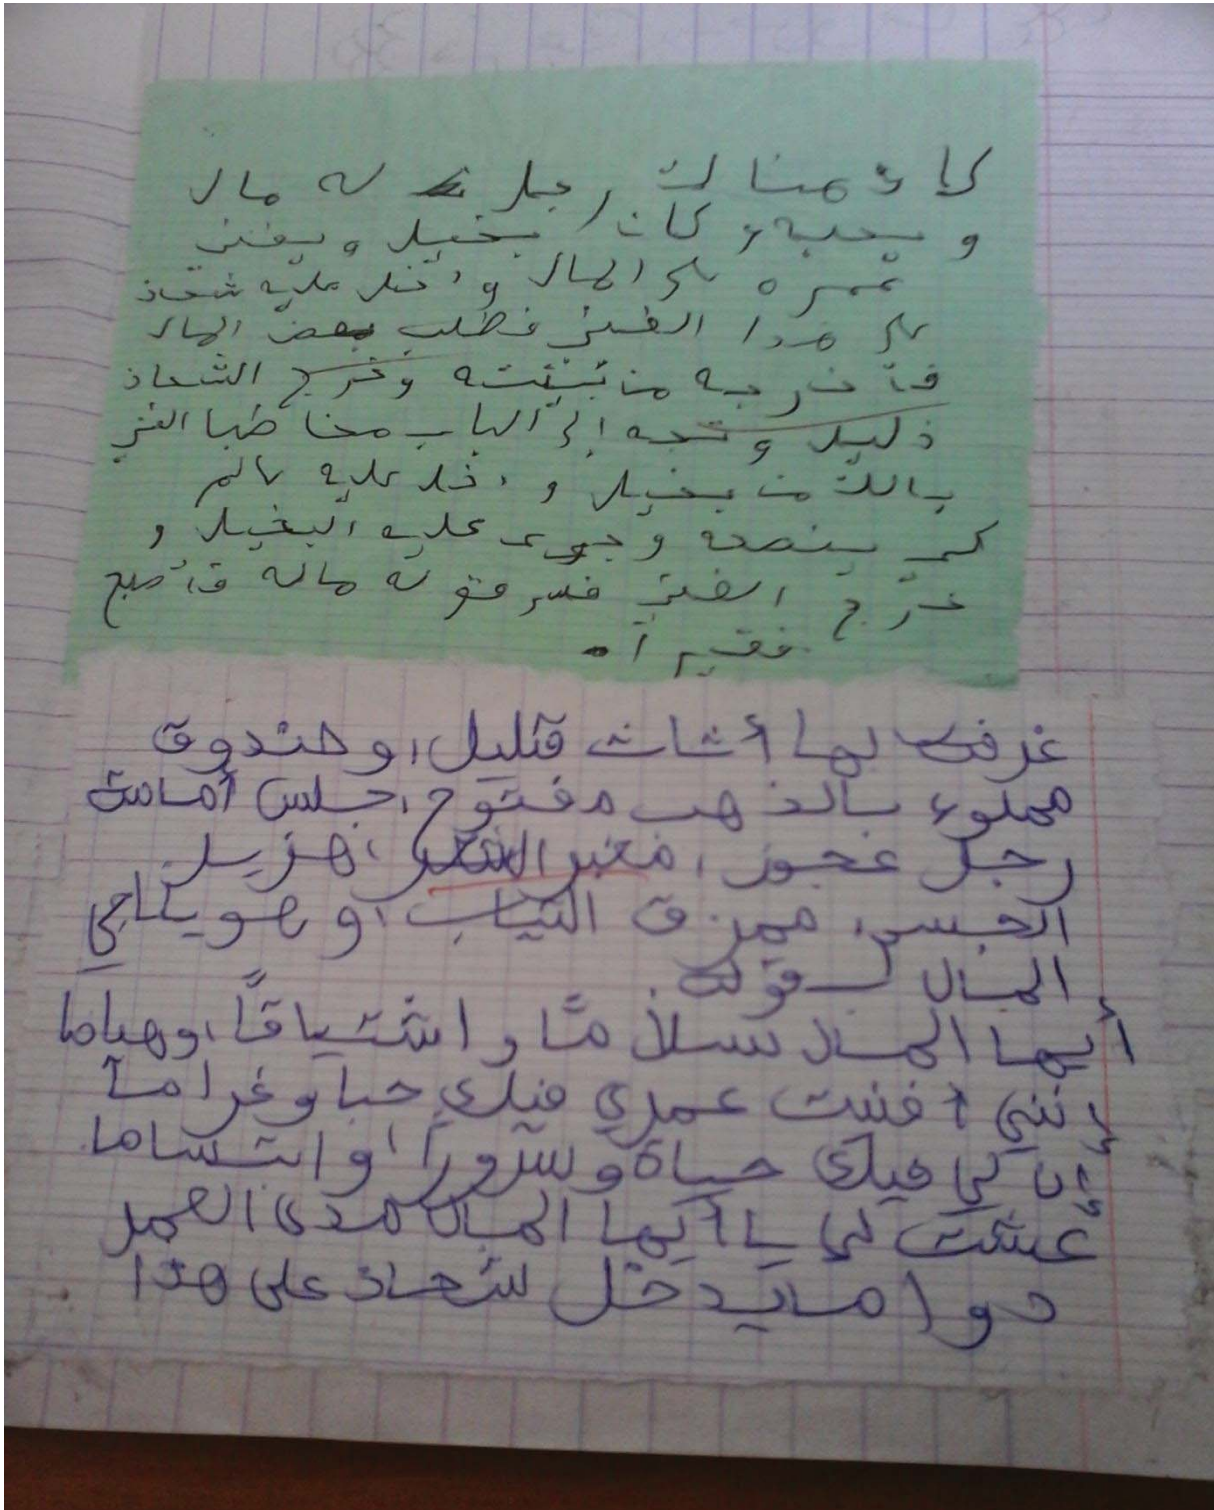 كان هناك رجل له مال
و يحبه و كان بخيل ويفني
عمره على المال و دخل عليه شحاذ
على هدا الغني فطلب بعض المال
فأخرجه من بيته وخرج الشحاذ
ذليل وتجه إلى الباب مخاطبا الغني
بخيل و دخل عليه عالم
كي ينصحه و عليه البخيل و
خرج الغني فسرقو له ماله فأصبح
فقيرا.
غرفة بها أثاث قليل، و صندوق
مملوء بالذهب مفتوح، جلس أمامه
رجل عجوز، مغبر الشعر، هزيل
الجسم، ممزق الثياب، و هو يناجي
المال بقوله.
أيها المال سلاما و اشتياقا، وهياما
إنني أفنيت عمري فيك حبا وغراما
إن لي فيك حياة وسرورا، و ابتساما
عشت لي يا أيها المال مدى العمر
دواما يدخل شحاذ على هذا